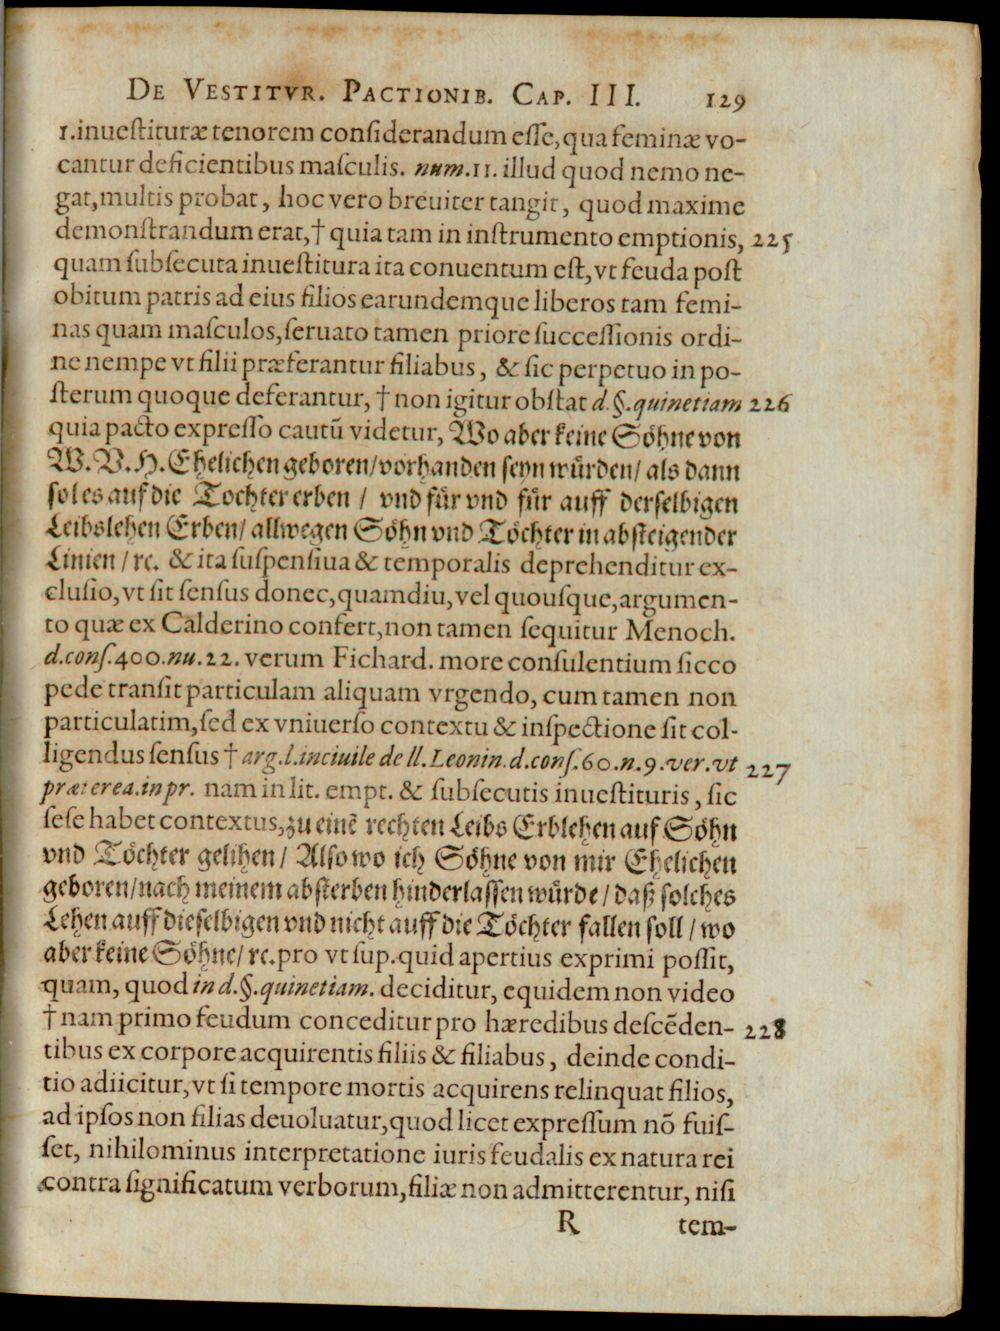 DE VESTITVR. PACTIONIB. CAP. III. 129
1.inuestituræ tenorem considerandum esse, qua feminæ vo-
cantur deficientibus masculis. num.11. illud quod nemo ne-
gat, multis probat, hoc vero breuiter tangit, quod maxime
demonstrandum erat, † quia tam in instrumento emptionis, 225
quam subsecuta inuestitura ita conuentum est, vt feuda post
obitum patris ad eius filios earundemque liberos tam femi-
nas quam masculos, seruato tamen priore successionis ordi-
ne nempe vt filii præferantur filiabus, & sic perpetuo in po-
sterum quoque deferantur, † non igitur obstat d.§.quinetiam 226
quia pacto expresso cautū videtur, Wo aber keine Söhne von
W.V.H. Ehelichen geboren/vorhanden seyn würden/ als dann
sol es auf die Tochter erben / vnd für vnd für auff derselbigen
Leibslehen Erben/ allwegen Söhn vnd Töchter in absteigender
Linien / rc. & ita suspensiua & temporalis deprehenditur ex-
clusio, vt sit sensus donec, quamdiu, vel quousque, argumen-
to quæ ex Calderino confert, non tamen sequitur Menoch.
d.cons.400.nu.22. verum Fichard. more consulentium sicco
pede transit particulam aliquam vrgendo, cum tamen non
particulatim, sed ex vniuerso contextu & inspectione sit col-
ligendus sensus † arg.l.inciuile de ll. Leonin.d.cons.60.n.9.ver.vt 227
præterea.in pr. nam in lit. empt. & subsecutis inuestituris, sic
sese habet contextus, zu einē rechten Leibs Erblehen auf Söhn
vnd Töchter gelihen/ Also wo ich Söhne von mir Ehelichen
geboren/nach meinem absterben hinderlassen würde/ daß solches
Lehen auff dieselbigen vnd nicht auff die Töchter fallen soll / wo
aber keine Söhne/ rc. pro vt sup. quid apertius exprimi possit,
quam, quod in d.§.quinetiam. deciditur, equidem non video
† nam primo feudum conceditur pro hæredibus descēden- 228
tibus ex corpore acquirentis filiis & filiabus, deinde condi-
tio adiicitur, vt si tempore mortis acquirens relinquat filios,
ad ipsos non filias deuoluatur, quod licet expressum nō fuis-
set, nihilominus interpretatione iuris feudalis ex natura rei
contra significatum verborum, filiæ non admitterentur, nisi
R tem-